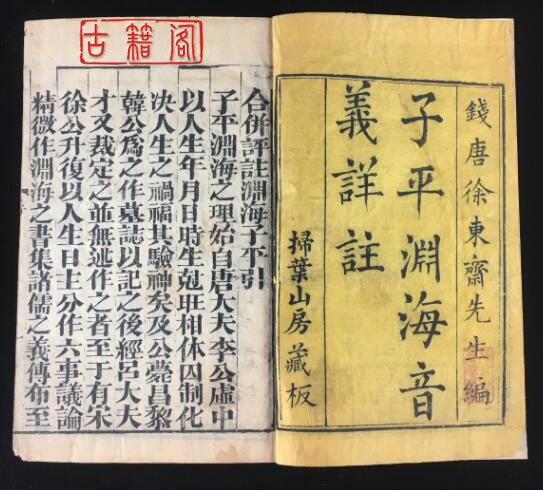 古籍阁
錢唐徐東齋先生編
子平淵海音
義詳註
掃葉山房藏板
合併評註淵海子平引
子平淵海之理始自唐大夫李公虛中
以人生年月日時生尅旺相休囚制化
决人生之禍福其驗神矣及公薨昌黎
韓公爲之作墓誌以記之後經呂大夫
才又裁定之並無述作之者至于有宋
徐公升復以人生日主分作六事議論
精微作淵海之書集諸儒之義傳布至